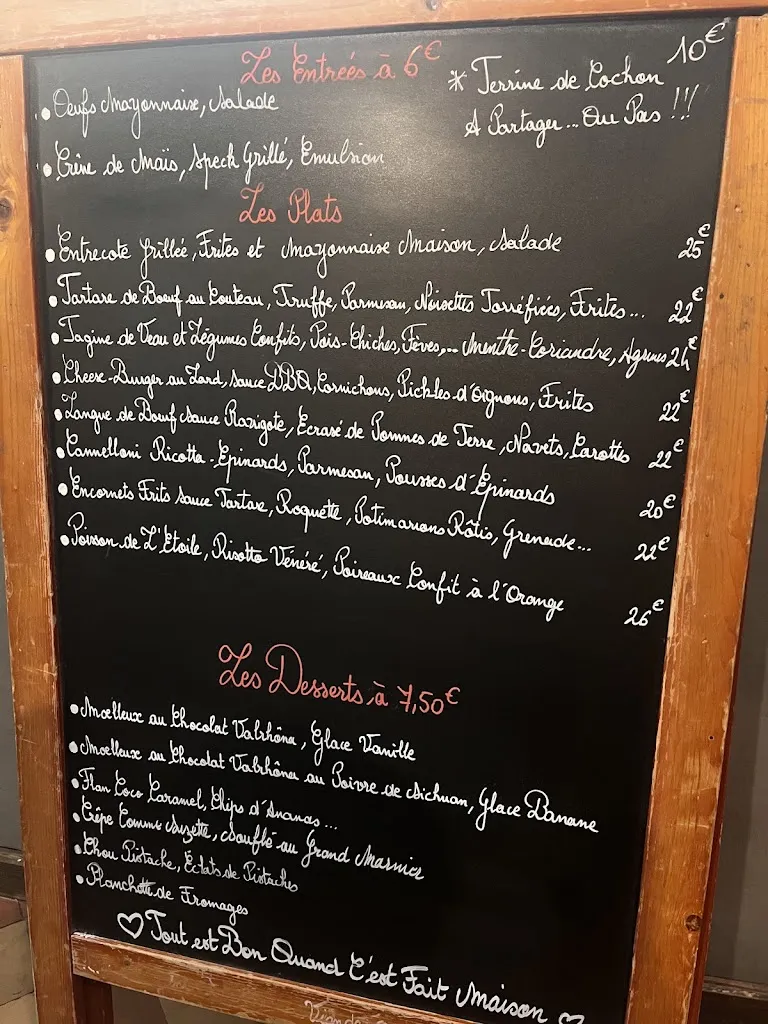 Les Entrées à 6€
* Terrine de Cochon 10€
A Partager... Ou Pas !!!
• Oeufs Mayonnaise, Salade
• Crème de Maïs, Speck Grillé, Emulsion
Les Plats
• Entrecote Grillée, Frites et Mayonnaise Maison, Salade 25€
• Tartare de Boeuf au Couteau, Truffe, Parmesan, Noisettes Torréfiées, Frites... 22€
• Tagine de Veau et Légumes Confits, Pois-Chiches, Fèves,... Menthe-Coriandre, Agrumes 24€
• Cheese-Burger au Lard, Sauce BBQ, Cornichons, Pickles d'Oignons, Frites 22€
• Langue de Boeuf Sauce Ravigote, Ecrasé de Pommes de Terre, Navets, Carottes 22€
• Cannelloni Ricotta-Epinards, Parmesan, Pousses d'Epinards 20€
• Encornets Frits Sauce Tartare, Roquette, Potimarrons Rôtis, Grenade... 22€
• Poisson de L'Etoile, Risotto Vénéré, Poireaux Confit à l'Orange 26€
Les Desserts à 7,50€
• Moelleux au Chocolat Valrhôna, Glace Vanille
• Moelleux au Chocolat Valrhôna au Poivre de Sichuan, Glace Banane
• Flan Coco Caramel, Chips d'Ananas...
• Crêpe Comme Suzette, Soufflé au Grand Marnier
• Chou Pistache, Éclats de Pistaches
• Planchette de Fromages
♡ Tout est Bon Quand C'est Fait Maison ♡